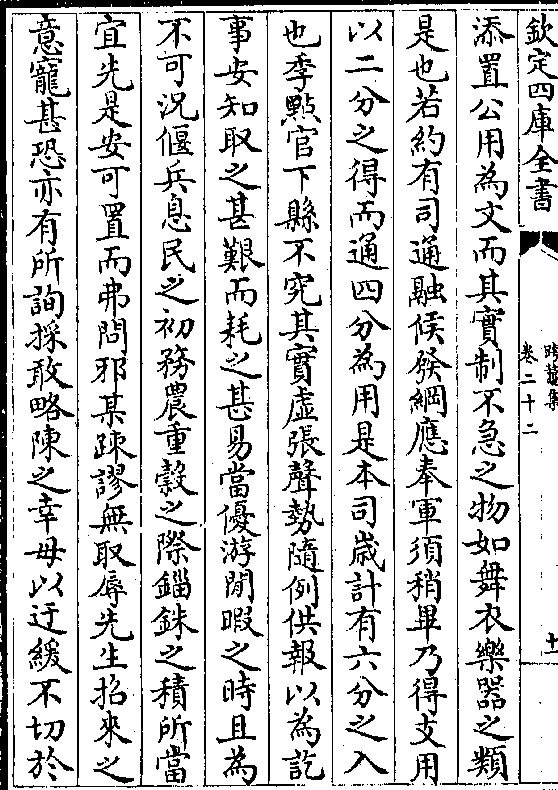 欽定四庫全書
卷二十二
十一
添置公用為文而其實制不急之物如舞衣樂器之類
是也若約有司通融候發綱應奉軍須稍畢乃得支用
以二分之得而通四分為用是本司歲計有六分之入
也季㸃官下縣不究其實虛張聲勢隨例供報以為訖
事安知取之甚艱而耗之甚易當優游閒暇之時且為
不可況偃兵息民之初務農重穀之際錙銖之積所當
宜先是安可置而弗問邪某疎謬無取辱先生招來之
意寵甚恐亦有所詢採敢略陳之幸毋以迂緩不切於